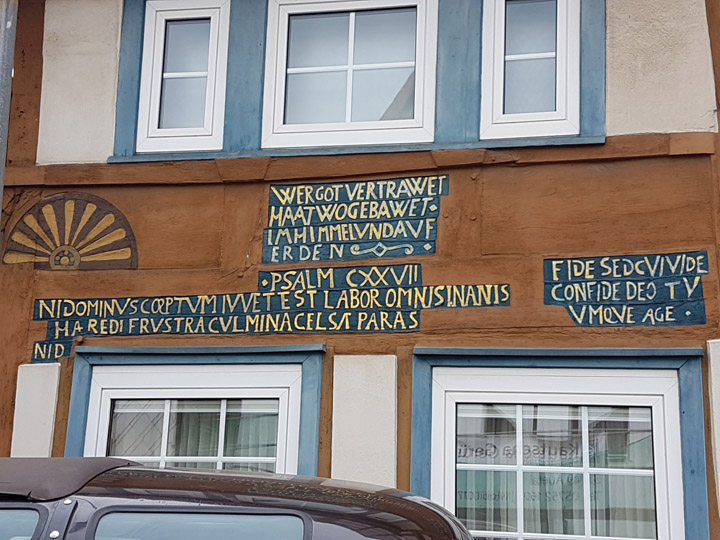 WER GOT VERTRAWET
HAAT WO GEBAWET·
IM HIMMEL VND AVF
ERDEN
·PSALM CXXVII
NI DOMINVS COEPTVM IVVET EST LABOR OMNIS INANIS
HAREDI FRVSTRA CVLMINA CELSA PARAS
NID
FIDE SED CVI VIDE
CONFIDE DEO TV
VMQVE AGE ·